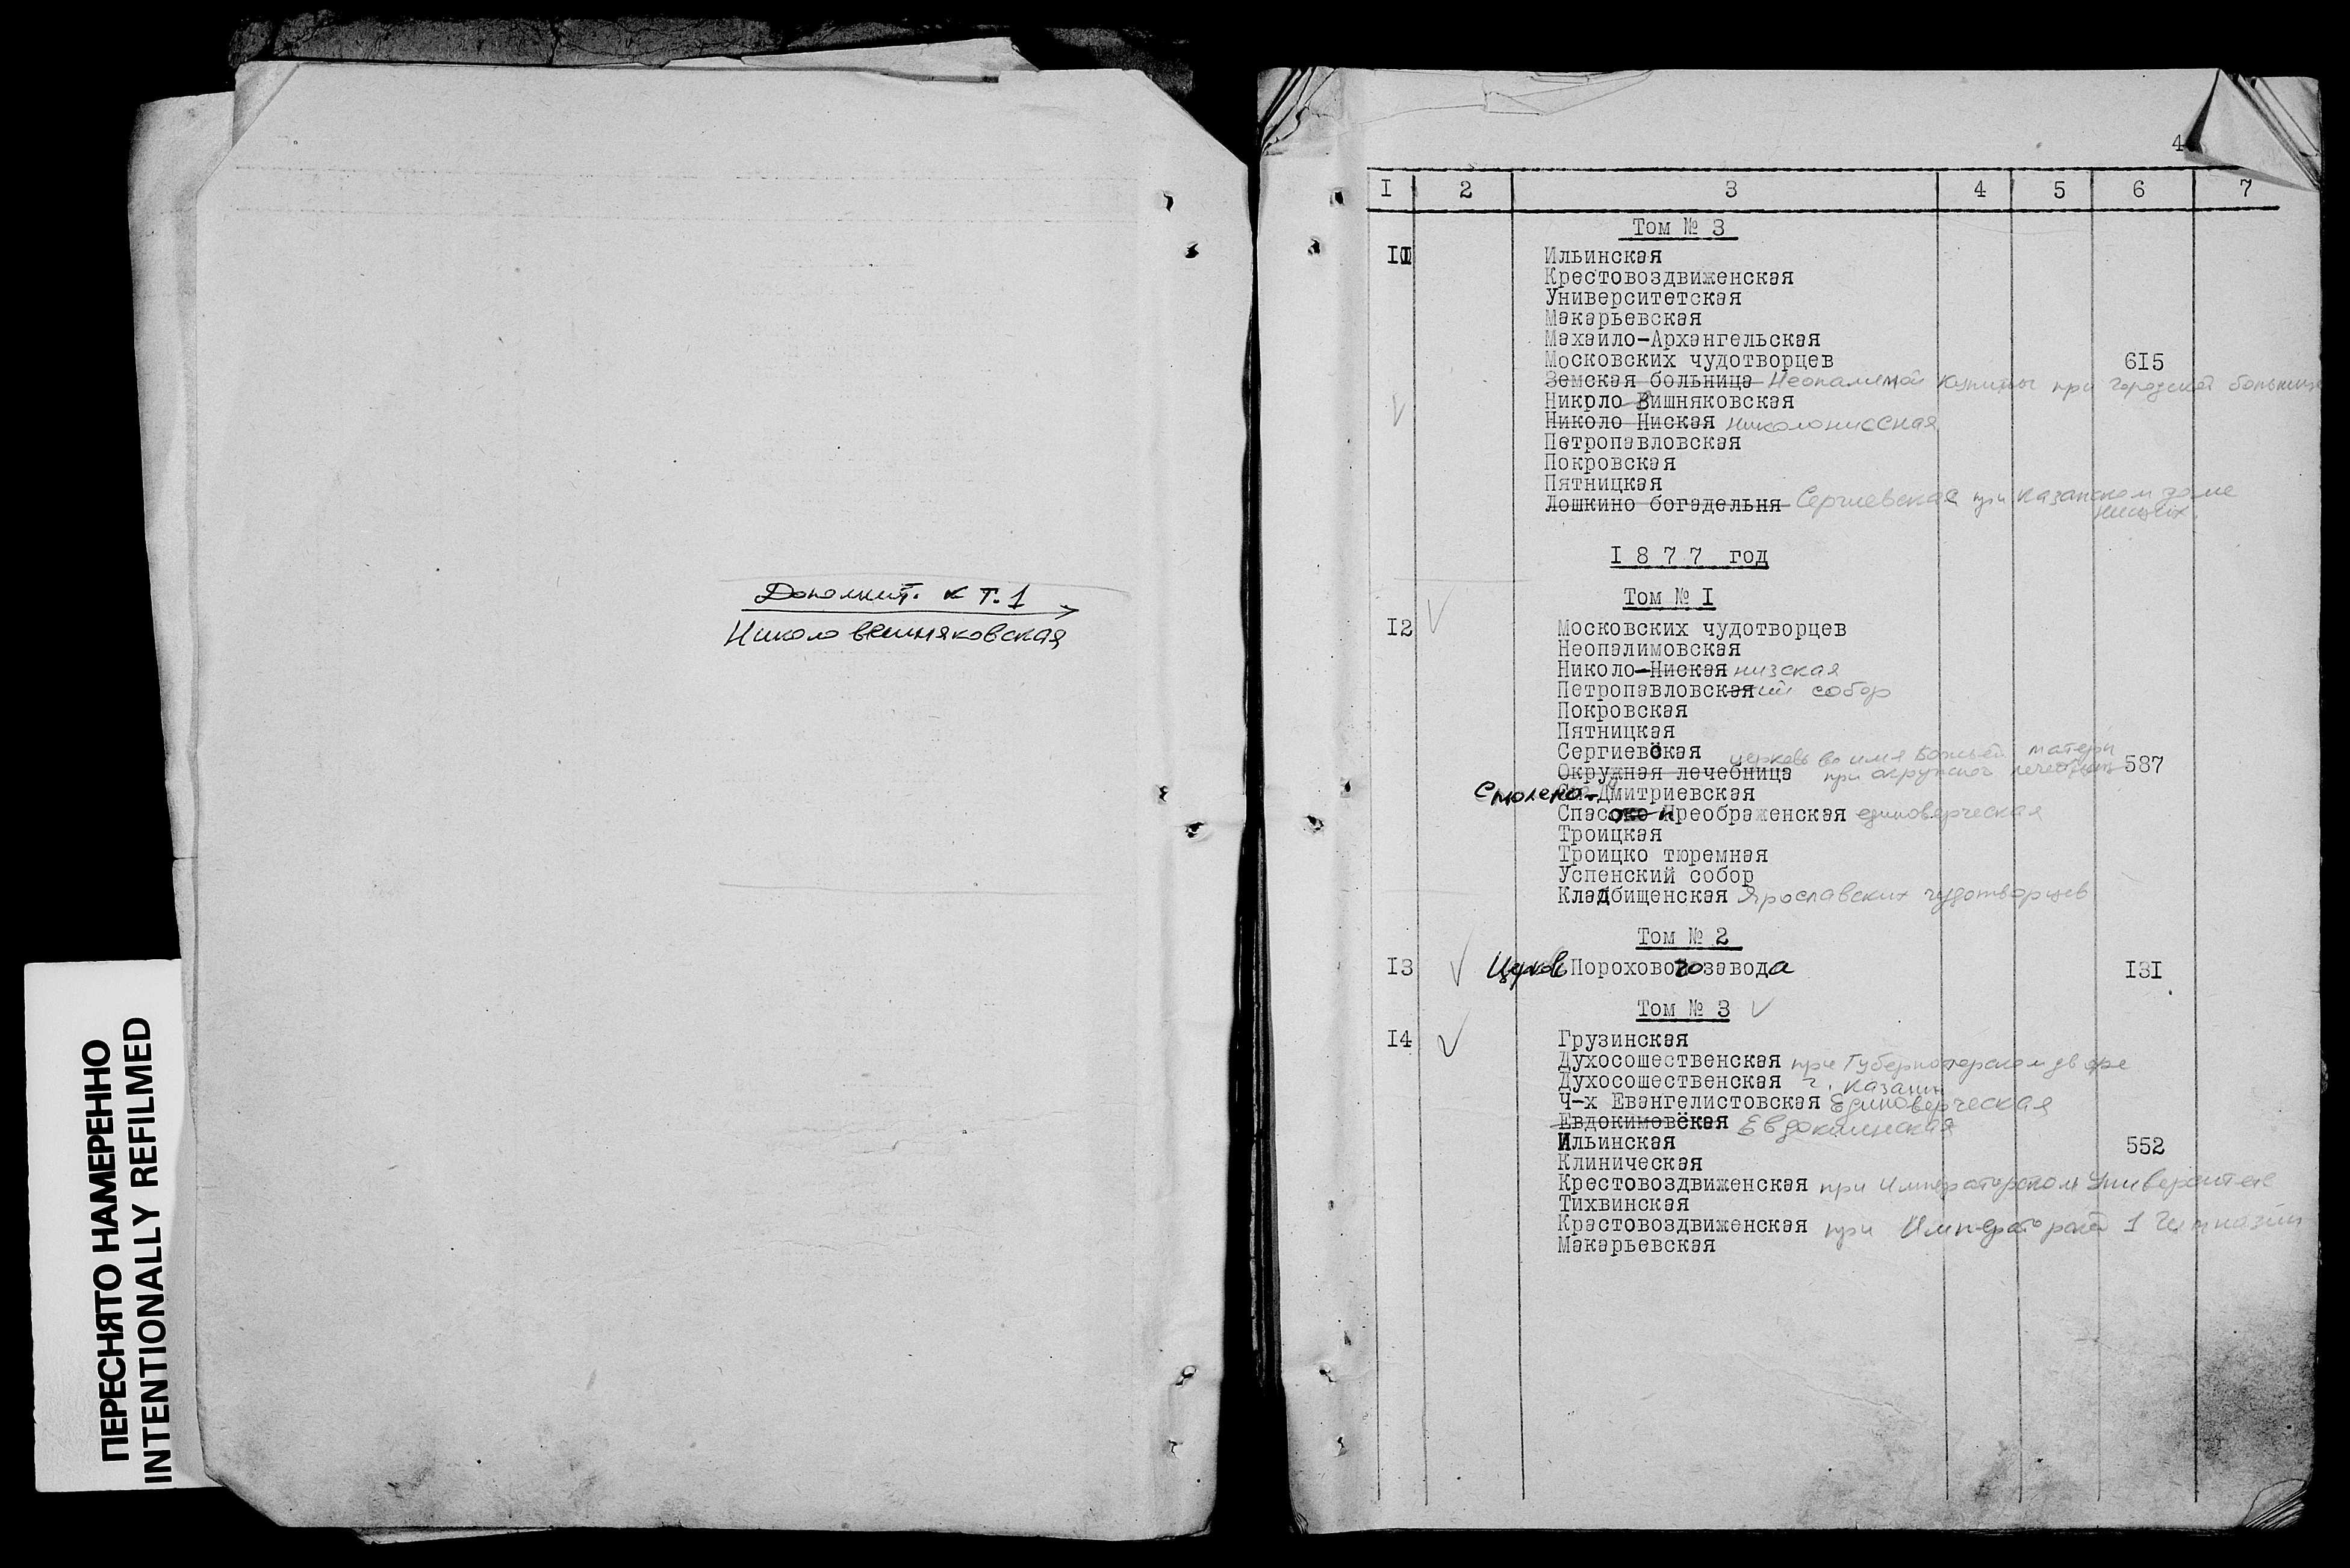 ПЕРЕСНЯТО НАМЕРЕННО
INTENTIONALLY REFILMED
Дополнит. к т.1
Николо вешняковская
4
I 2 3 4 5 6 7
Том № 3
II Ильинская
Крестовоздвиженская
Университетская
Макарьевская
Махаило-Архангельская
Московских чудотворцев 615
Земская больница Неопалимой Купины при городской больнице
Никрло Вишняковская
Николо Ниская николониссная
Петропавловская
Покровская
Пятницкая
Лошкино богадельня Сергиевская при Казанском доме
нищих.
I 8 7 7 год
Том № I
I2 Московских чудотворцев
Неопалимовская
Николо-Ниская низская
Петропавловская ий собор
Покровская
Пятницкая
Сергиевская
церковь во имя Божьей матери
Окружная лечебница при окружной лечебнице 587
Смоленс.-Дмитриевская
Спасо Преображенская единоверческая
Троицкая
Троицко тюремная
Успенский собор
Кладбищенская Ярославских чудотворцев
Том № 2
I3 Церковь Порохового завода I3I
Том № 3
I4 Грузинская
Духосошественская при Губернаторском дворе
Духосошественская г. Казани
Ч-х Евангелистовская Единоверческая
Евдокимовская Евдокимская
Ильинская 552
Клиническая
Крестовоздвиженская при Императорском Университете
Тихвинская
Крастовоздвиженская при Императорской 1 Гимназии
Макарьевская